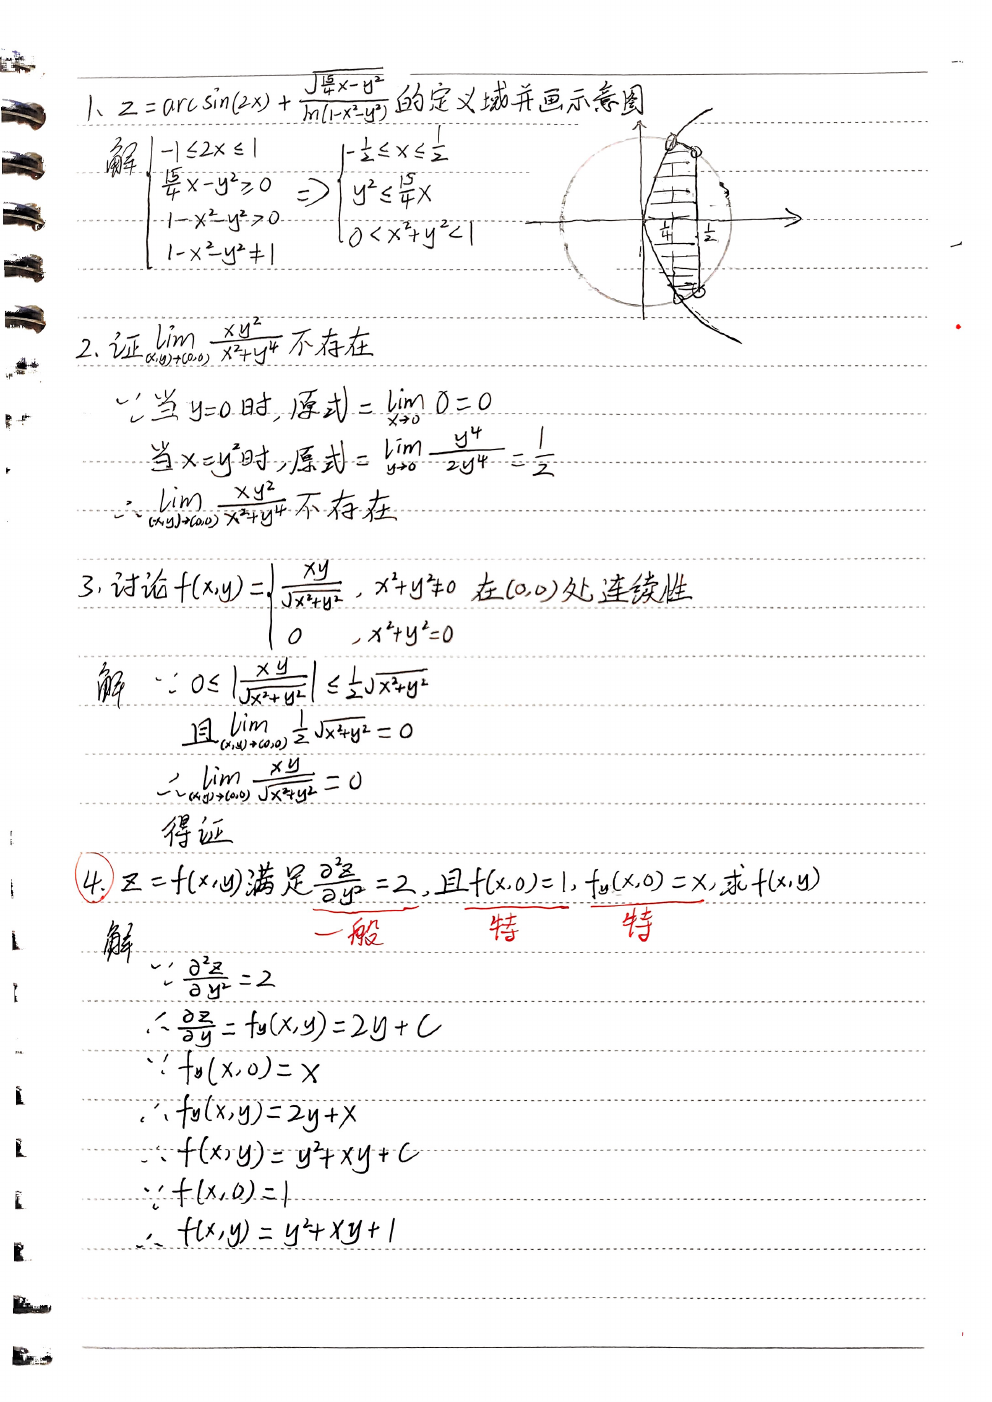 1、z=arcsin(2x)+√(15/4x-y²)/ln(1-x²-y²)的定义域并画示意图
解 { -1≤2x≤1 ⇒ { -1/2≤x≤1/2
15/4x-y²≥0 y²≤15/4x
1-x²-y²>0 0<x²+y²<1
1-x²-y²≠1
1/4 1/2
2、证lim(x,y)→(0,0) xy²/x²+y⁴ 不存在
∵当y=0时,原式=lim x→0 0=0
当x=y²时,原式=lim y→0 y⁴/2y⁴=1/2
∴lim(x,y)→(0,0) xy²/x²+y⁴ 不存在
3、讨论f(x,y)={ xy/√x²+y², x²+y²≠0 在(0,0)处连续性
0 , x²+y²=0
解 ∵0≤|xy/√x²+y²|≤1/2√x²+y²
且lim(x,y)→(0,0) 1/2√x²+y²=0
∴lim(x,y)→(0,0) xy/√x²+y²=0
得证
4、z=f(x,y)满足∂²z/∂y²=2,且f(x,0)=1,fy(x,0)=x,求f(x,y)
一般 特 特
解
∵∂²z/∂y²=2
∴∂z/∂y=fy(x,y)=2y+C
∵fy(x,0)=x
∴fy(x,y)=2y+x
∴f(x,y)=y²+xy+C
∵f(x,0)=1
∴f(x,y)=y²+xy+1